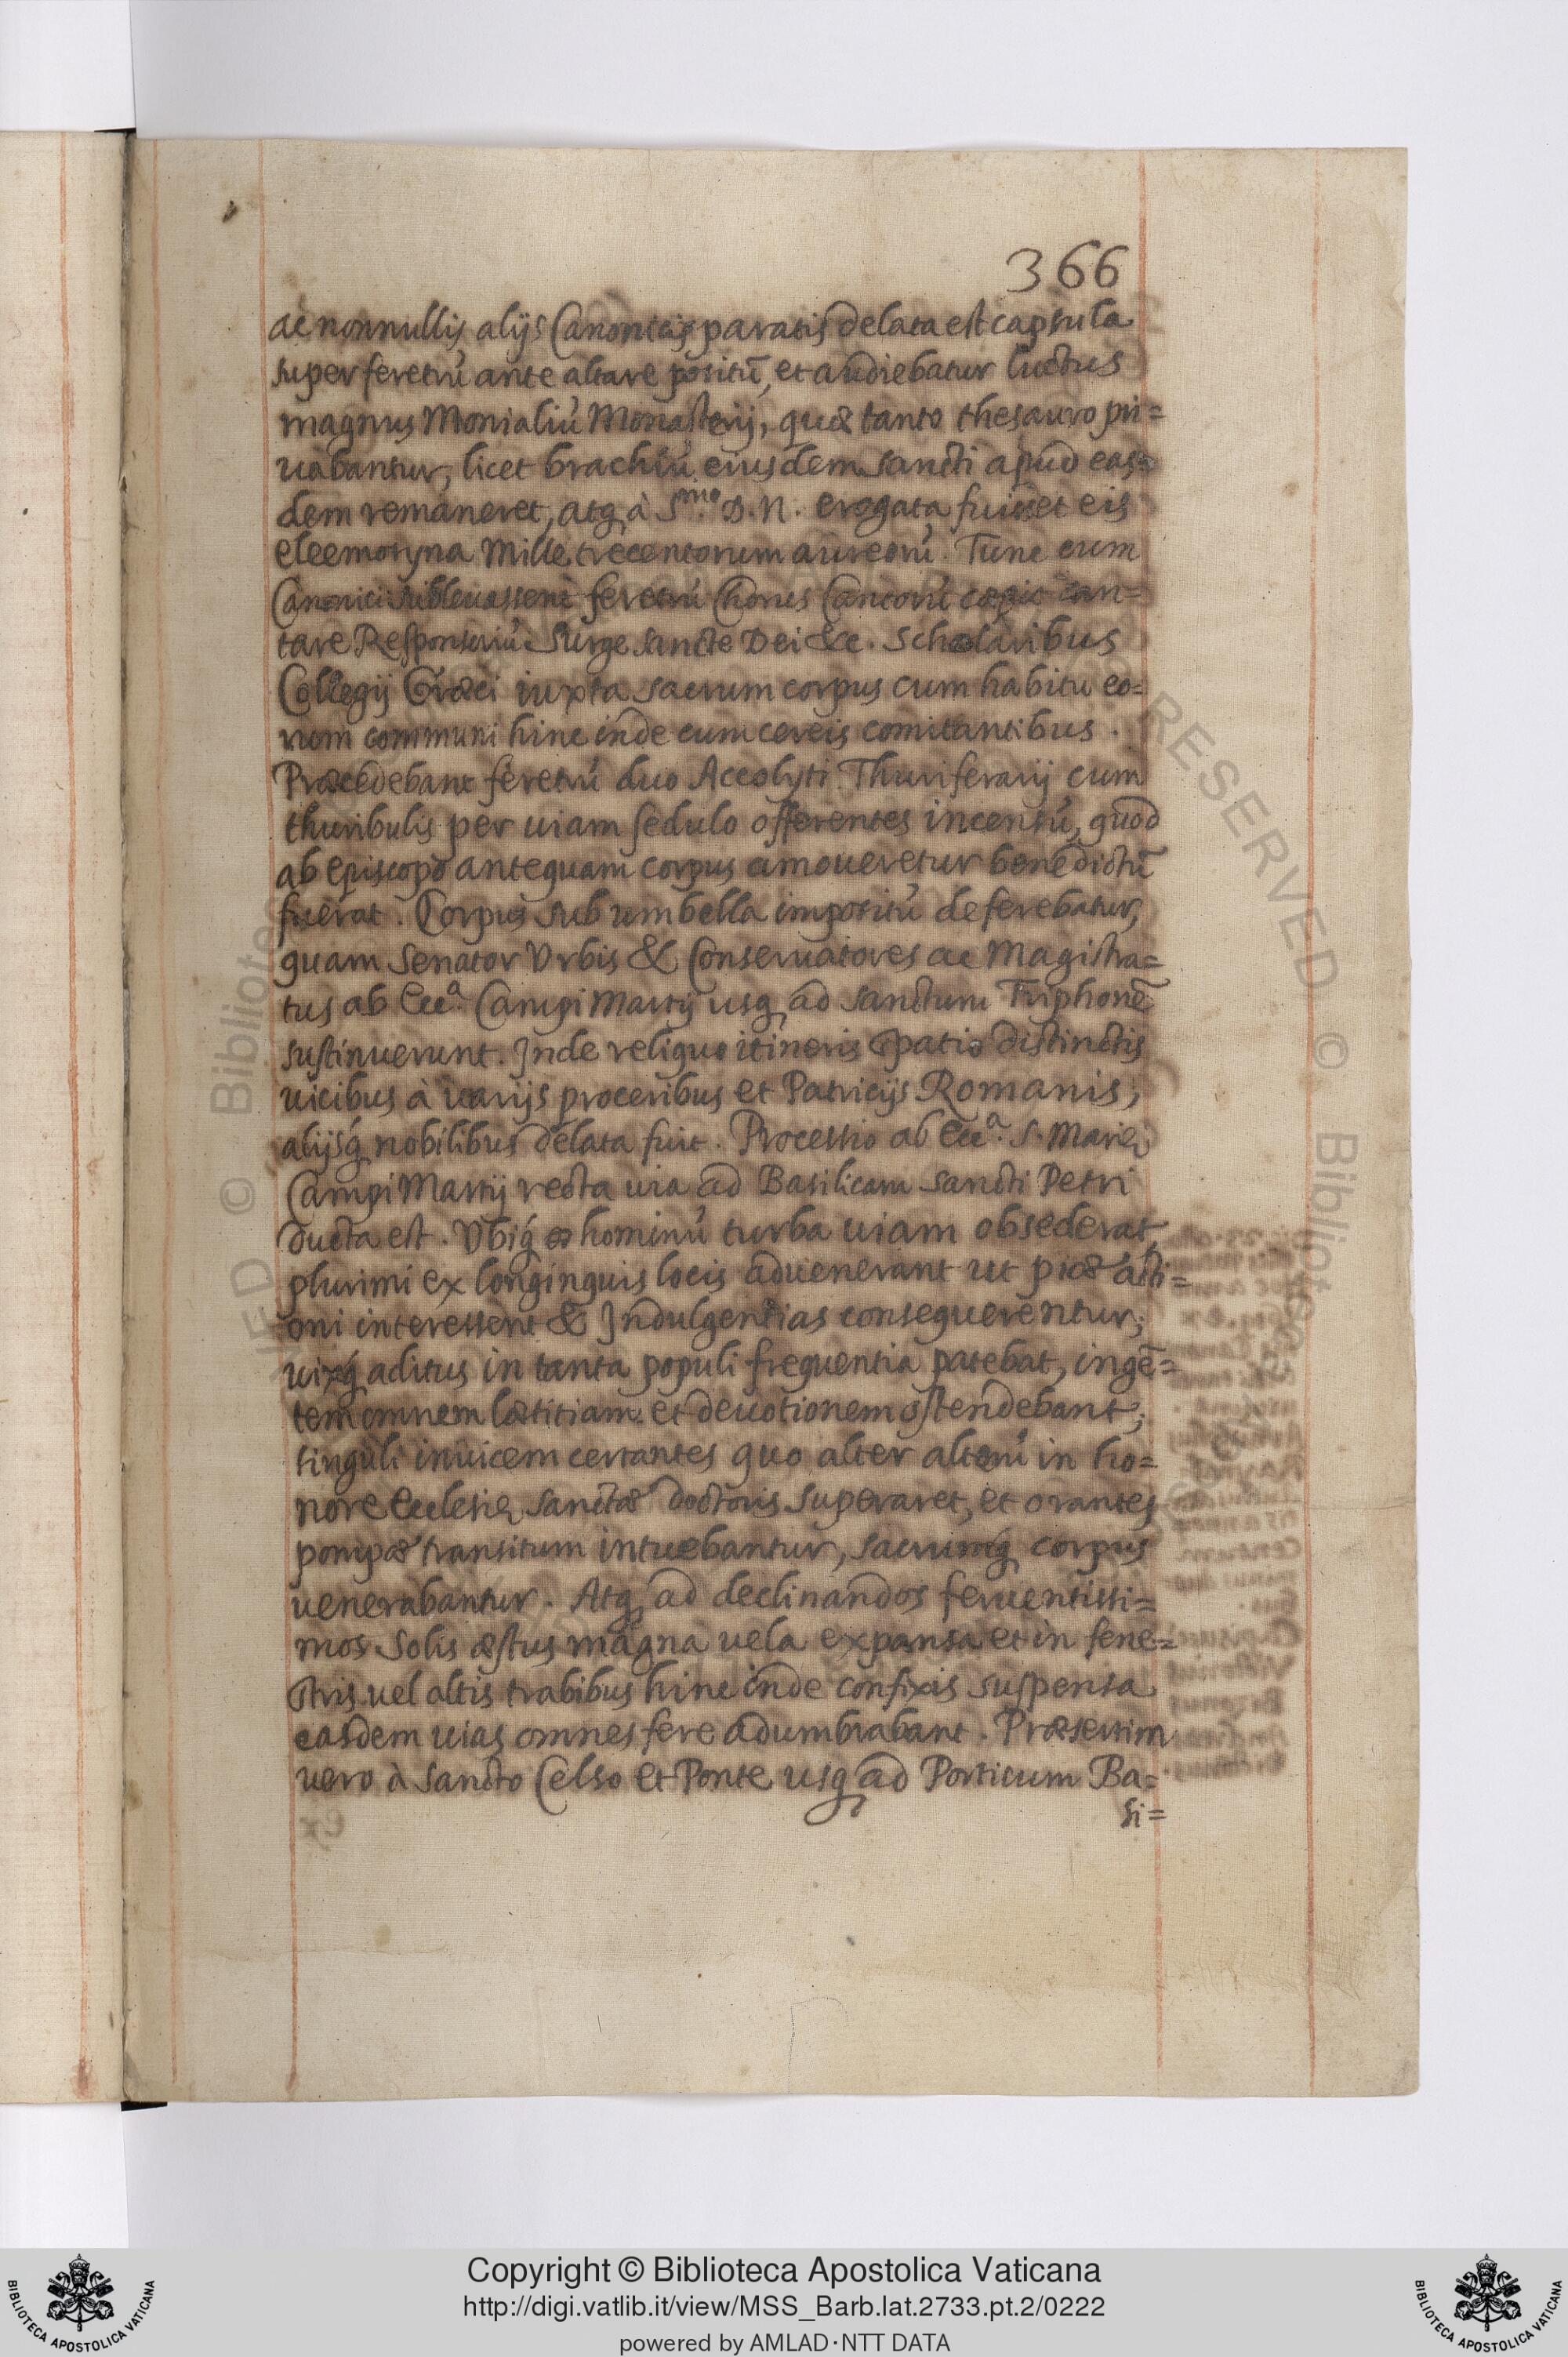 366
ac nonnullis alijs Canonicis paratis delata est capsula
super feretrũ ante altare positũ, et audiebatur luctus
magnus Monialiũ Monasterij, quæ tanto thesauro pri=
uabantur, licet brachiũ eiusdem sancti apud eas=
dem remaneret, atq, à S.mo D. N. erogata fuisset eis
eleemosyna Mille trecentorum aureorũ. Tunc cum
Canonici subleuassent feretrũ Chorus Cantorũ cœpit can=
tare Responsoriũ Surge sancte Dei &c. Scholaribus
Collegij Græci iuxta sacrum corpus cum habitu eo=
rum communi hinc inde cum cereis comitantibus.
Præcedebant feretrũ duo Accolyti Thuriferarij cum
thuribulis per uiam sedulo offerentes incensũ, quod
ab episcopo antequam corpus amoueretur benedictũ
fuerat. Corpus sub umbella impositũ deferebatur,
quam Senator Vrbis & Conseruatores ac Magistra=
tus ab Ecc.a Campi Martij usq, ad sanctum Triphonẽ
sustinuerunt. Inde reliquo itineris spatio distinctis
uicibus à uarijs proceribus et Patricijs Romanis,
alijsq́ nobilibus delata fuit. Processio ab Ecc.a S. Marię
Campi Martij recta uia ad Basilicam sancti Petri
ducta est. Vbiq́ hominũ turba uiam obsederat,
plurimi ex longinquis locis aduenerant ut piæ acti=
oni interessent & Indulgentias consequerentur;
uixq́ aditus in tanta populi frequentia patebat, ingẽ=
tem omnem lætitiam et deuotionem ostendebant;
singuli inuicem certantes quo alter alterũ in ho=
nore Ecclesię sanctæ doctoris superaret, et orantes
pompæ transitum intuebantur, sacrumq́ corpus
uenerabantur. Atq, ad declinandos feruentissi=
mos Solis æstus magna uela expansa et in fene=
stris uel altis trabibus hinc inde confixis suspensa
easdem uias omnes fere adumbrabant. Præsertim
uero à sancto Celso et Ponte usq, ad Porticum Ba=
si=
Copyright © Biblioteca Apostolica Vaticana
http://digi.vatlib.it/view/MSS_Barb.lat.2733.pt.2/0222
powered by AMLAD·NTT DATA
BIBLIOTECA APOSTOLICA VATICANA
BIBLIOTECA APOSTOLICA VATICANA